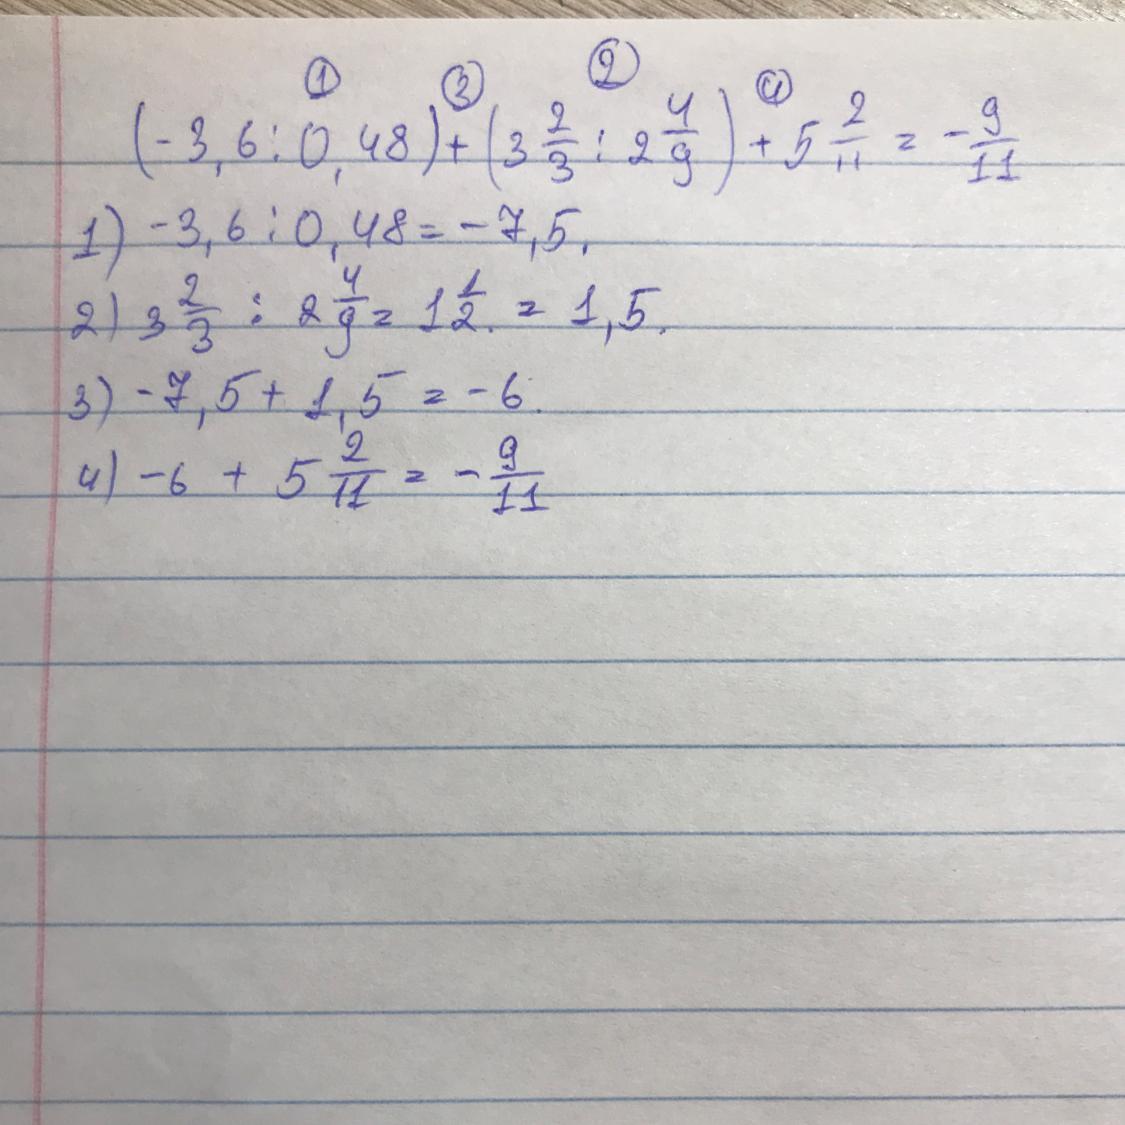 ① ③ ② ④
(-3,6:0,48)+(3 2/3 : 2 4/9)+5 2/11 = -9/11
1) -3,6:0,48=-7,5.
2) 3 2/3 : 2 4/9 = 1 1/2. = 1,5.
3) -7,5+1,5 = -6.
4) -6 + 5 2/11 = -9/11